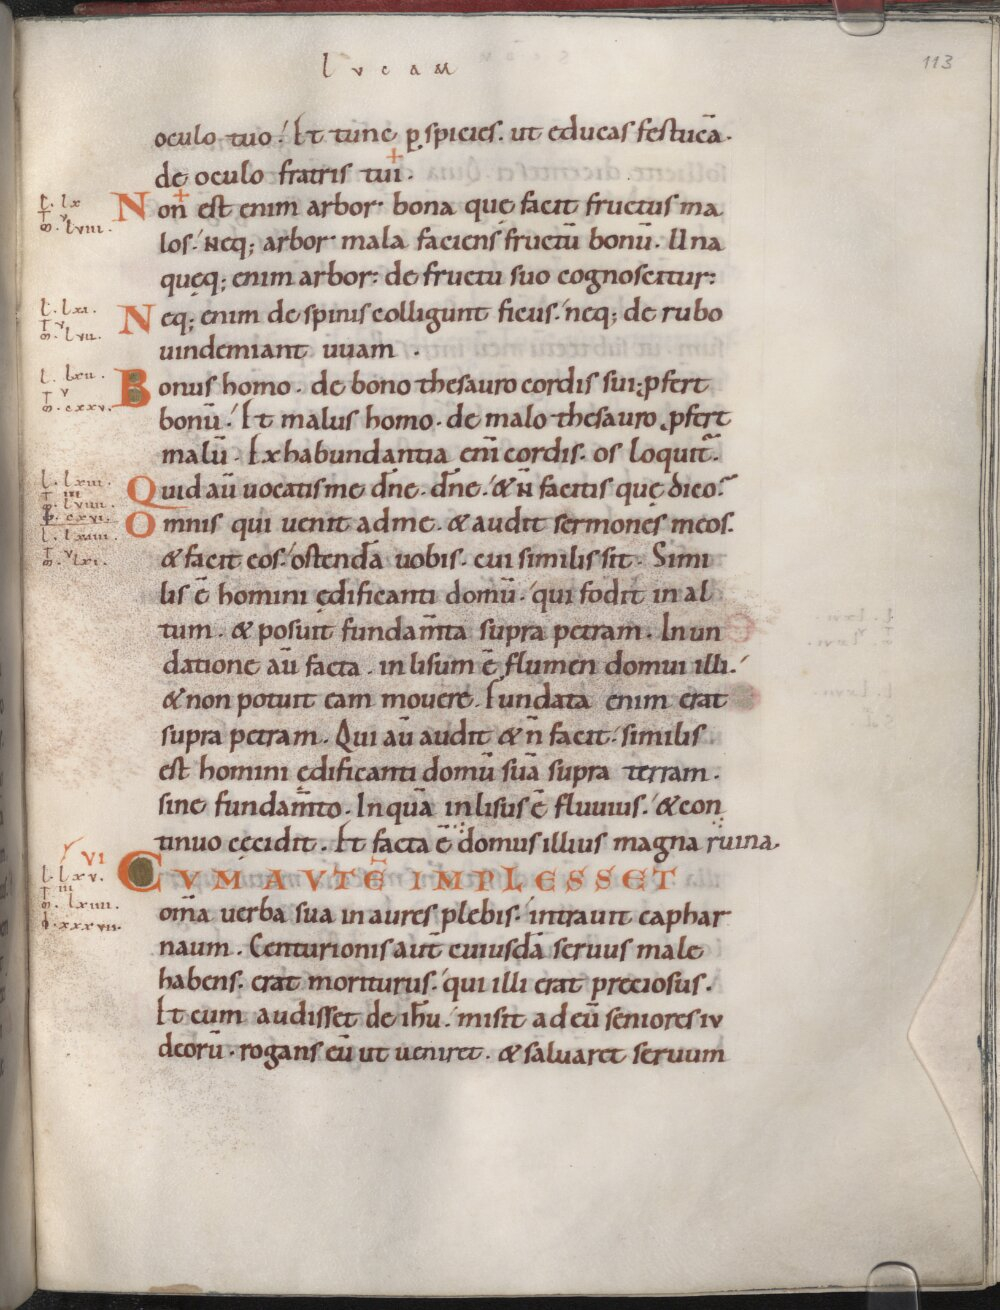 lvcam
113
oculo tuo. Et tunc ꝑspicies. ut educas festucā.
de oculo fratris tui.
Non est enim arbor bona quę facit fructus ma
los. neq; arbor mala faciens fructū bonū. Una
quęq; enim arbor. de fructu suo cognoscitur.
Neq; enim de spinis colligunt ficus. neq; de rubo
uindemiant uuam.
Bonus homo. de bono thesauro cordis sui; ꝓfert
bonū. Et malus homo. de malo thesauro ꝓfert
malū. Ex habundantia eni̅ cordis. os loquit̅.
Quid aū uocatis me dn̅e. dn̅e. & n̄ facitis quę dico?
Omnis qui uenit ad me. & audit sermones meos.
& facit eos. ostendā uobis. cui similis sit. Simi
lis ē homini ędificanti domū. qui fodit in al
tum. & posuit fundam̅ta supra petram. Inun
datione aū facta. inlisum ē flumen domui illi.
& non potuit eam mouere. Fundata enim erat
supra petram. Qui aū audit & n̄ facit. similis
est homini ędificanti domū suā supra terram.
sine fundam̅to. In quā inlisus ē fluuius. & con
tinuo cęcidit. Et facta ē domus illius magna ruina.
VI
CVM AVTĒ IMPLESSET
om̅a uerba sua in aures plebis. intrauit caphar
naum. Centurionis aut̅ cuiusdā seruus male
habens. erat moriturus. qui illi erat preciosus.
Et cum audisset de ih̅u. misit ad eū seniores iv
deorū. rogans eū ut ueniret. & saluaret seruum
l. lx
m. lviii.
l. lxi.
v
m. lvii.
l. lxii.
v
m. cxxv.
l. lxiii.
iii
m. lviiii.
cxvi.
l. lxiiii.
v
m. lxi.
l. lxv.
iii
m. lxiiii.
xxxvii.